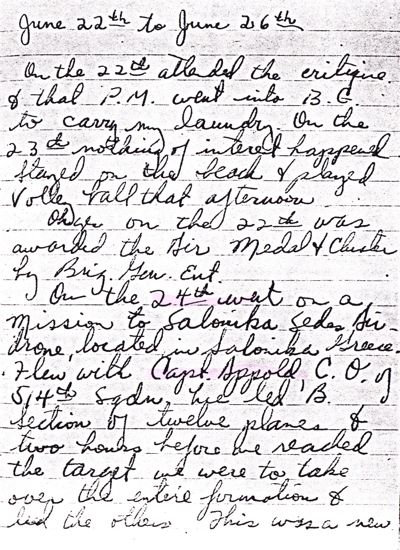 June 22th to June 26th
On the 22th attended the critique
& that P.M. went into B.G
to carry my laundry. On the
23th nothing of interest happened
Stayed on the beach & played
Volley ball that afternoon
Oh yes on the 22th was
awarded the Air Medal & Cluster
by Brig. Gen. Ent.
On the 24th went on a
Mission to Salonika Sedes Air-
drone, located in Salonika Greece.
Flew with Capt. Appold, C. O. of
514th Sqdn, he led B.
section of twelve planes &
two hours before we reached
the target we were to take
over the entire formation &
led the others This was a new